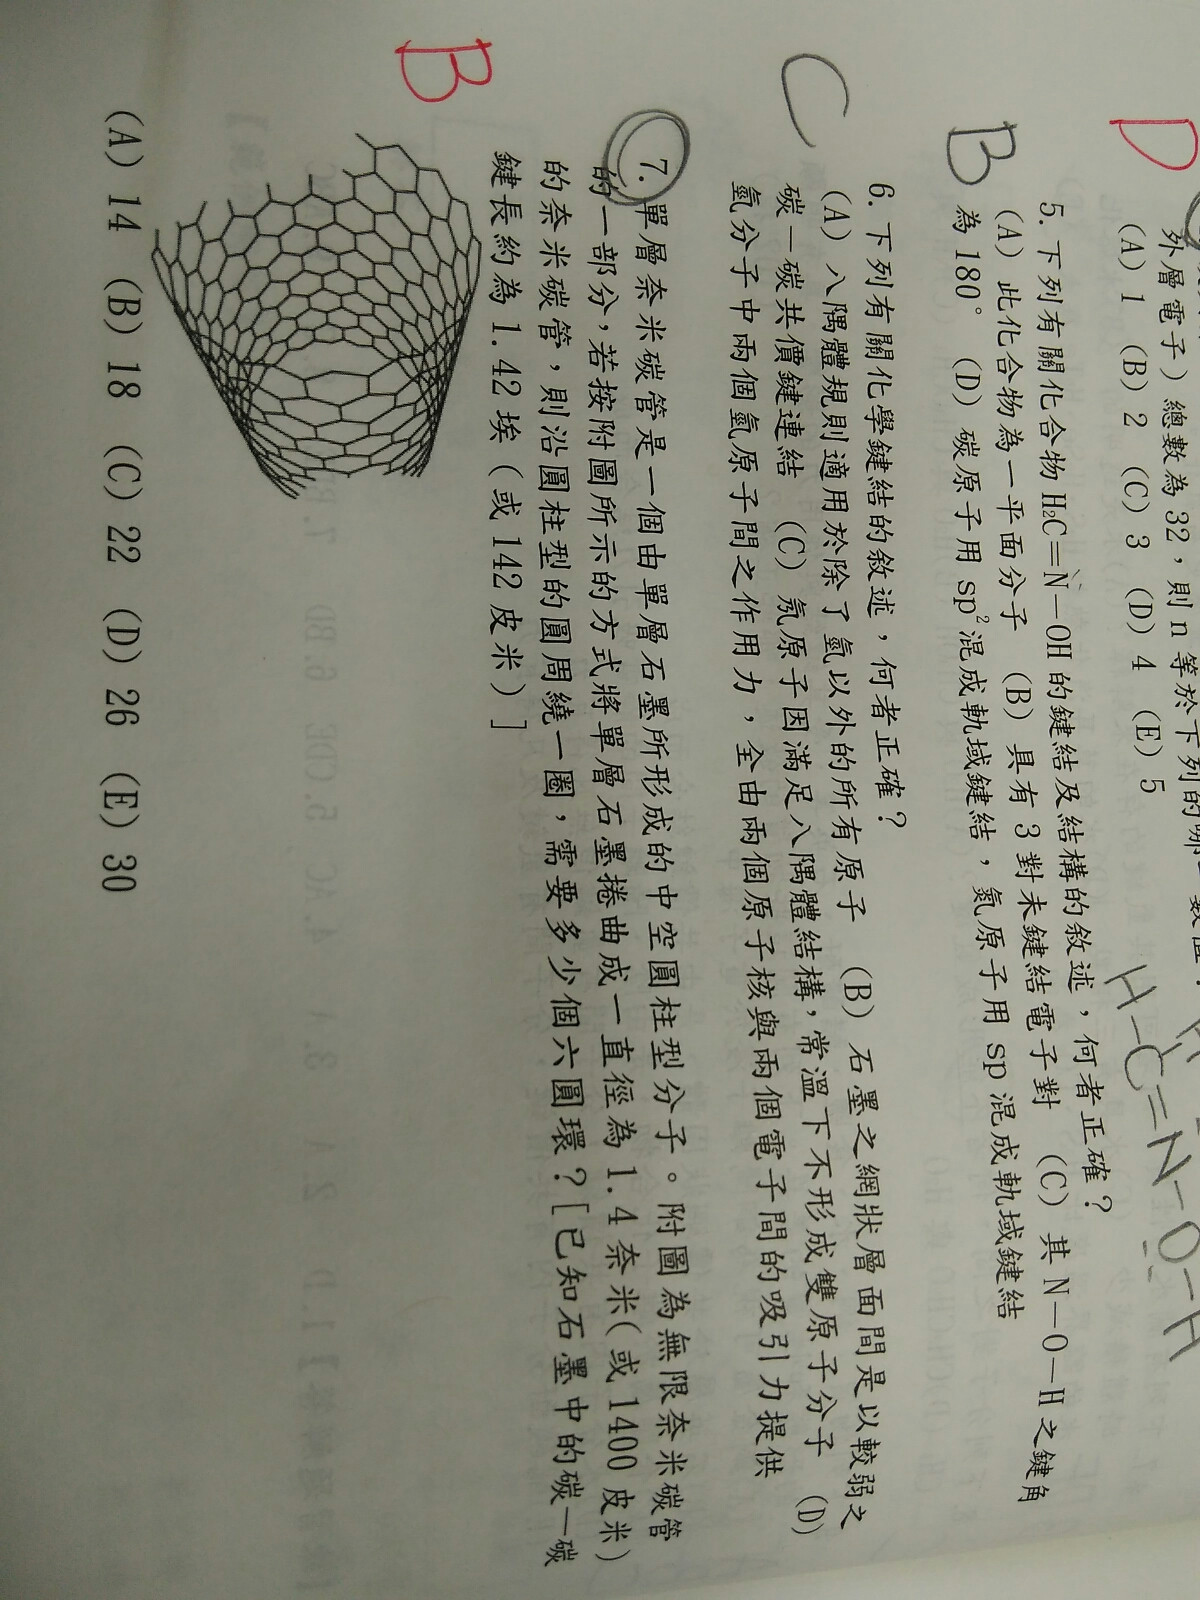 D
外層電子)總數為32,則n等於下列的哪
(A) 1 (B) 2 (C) 3 (D) 4 (E) 5
B
5. 下列有關化合物 H₂C=N-OH 的鍵結及結構的敘述,何者正確?
(A) 此化合物為一平面分子 (B) 具有3對未鍵結電子對 (C) 其 N-O-H 之鍵角
為180° (D) 碳原子用 sp² 混成軌域鍵結,氮原子用 sp 混成軌域鍵結
H-C=N-O-H
C
6. 下列有關化學鍵結的敘述,何者正確?
(A) 八隅體規則適用於除了氫以外的所有原子 (B) 石墨之網狀層面間是以較弱之
碳-碳共價鍵連結 (C) 氖原子因滿足八隅體結構,常溫下不形成雙原子分子 (D)
氫分子中兩個氫原子間之作用力,全由兩個原子核與兩個電子間的吸引力提供
B
7. 單層奈米碳管是一個由單層石墨所形成的中空圓柱型分子。附圖為無限奈米碳管
的一部分,若按附圖所示的方式將單層石墨捲曲成一直徑為1.4奈米(或1400皮米)
的奈米碳管,則沿圓柱型的圓周繞一圈,需要多少個六圓環?[已知石墨中的碳-碳
鍵長約為1.42埃(或142皮米)]
(A) 14 (B) 18 (C) 22 (D) 26 (E) 30